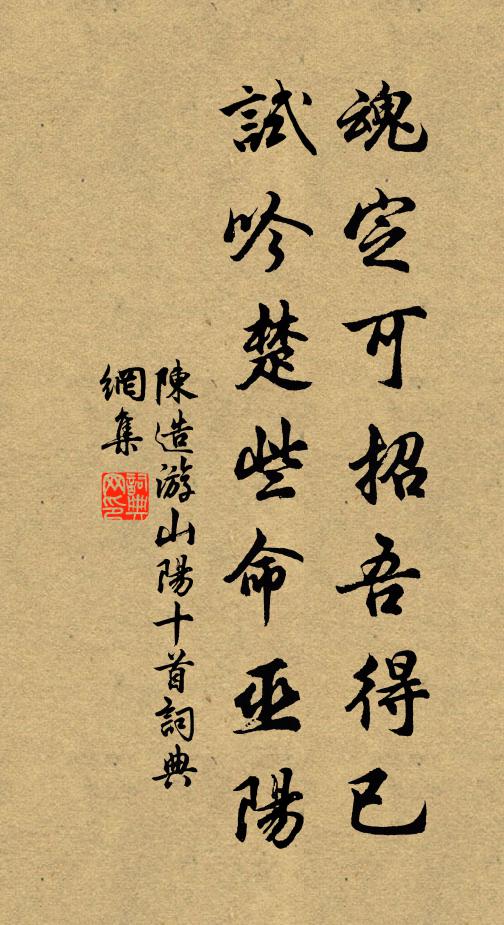 魂定可招吾得已
試吟楚些命巫陽
陳造游山陽十首詞典
網集
詞典
网印